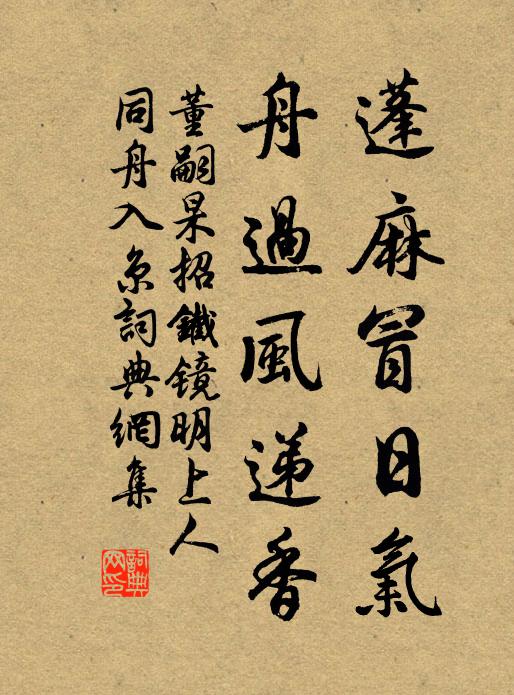 蓬麻冒日氣
舟過風递香
董嗣杲招鐵镜明上人
同舟入京詞典網集
詞典
网印